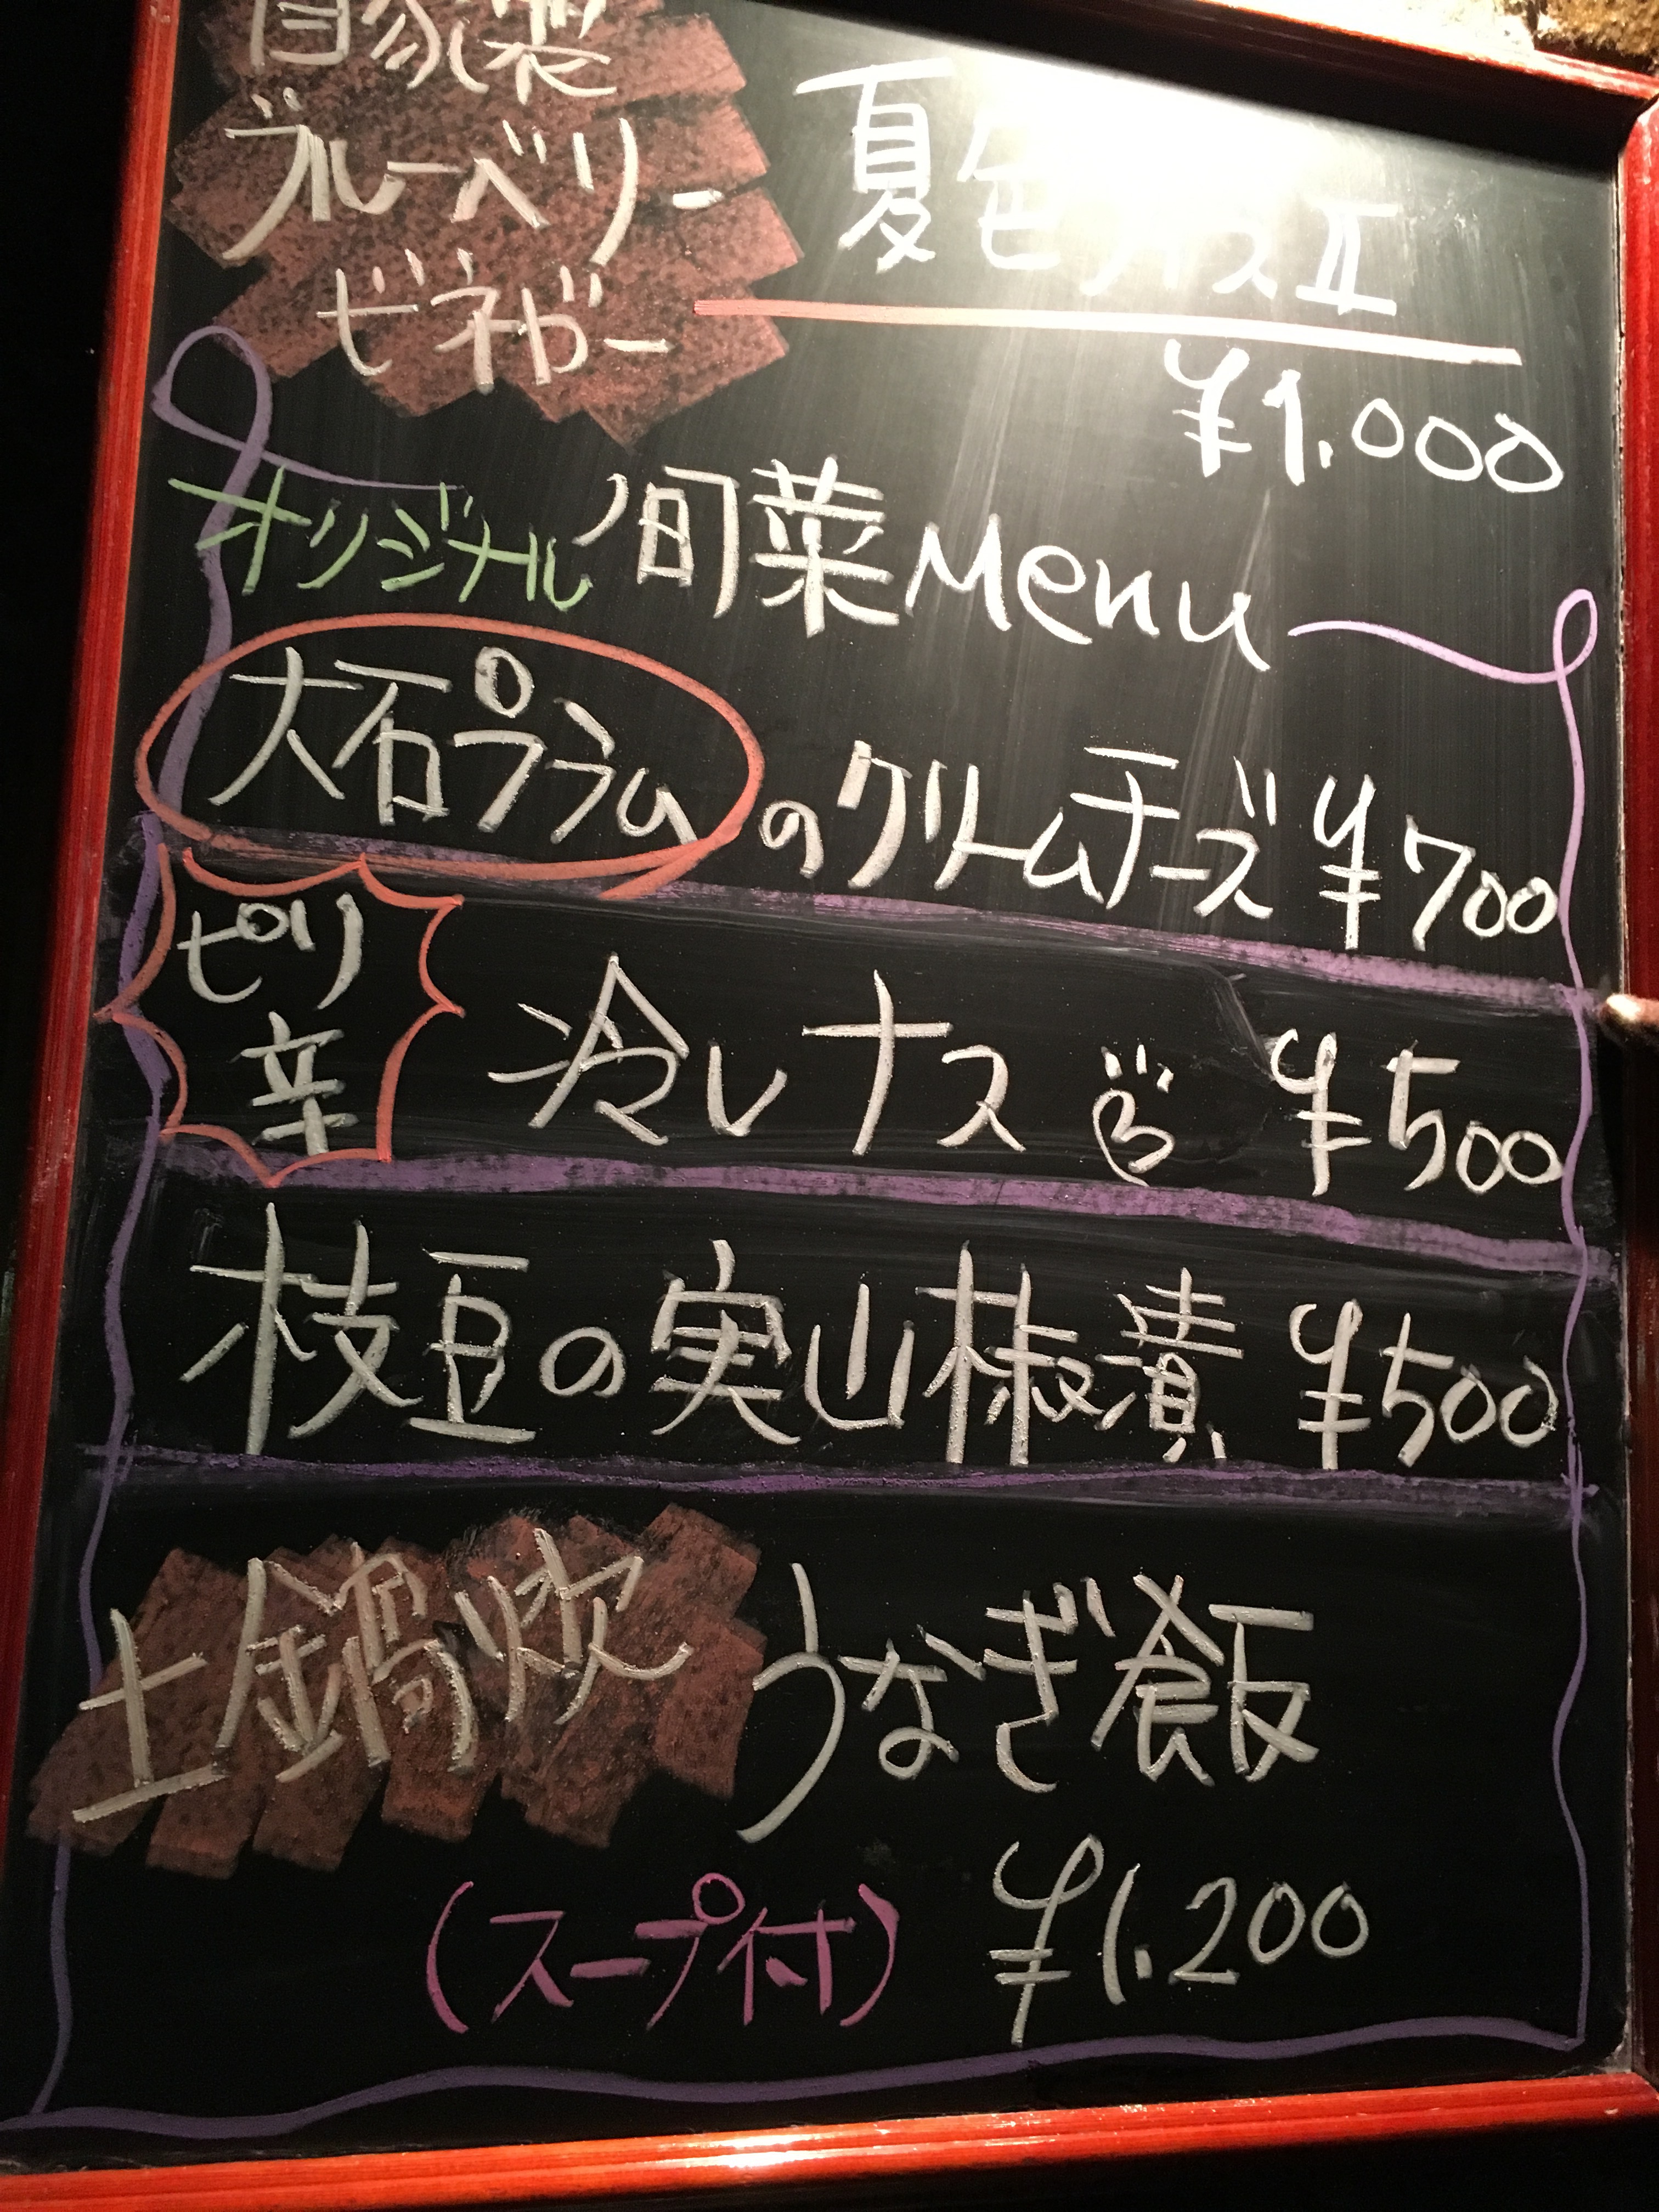 自家製
ブルーベリー
ビネガー
夏色
スⅡ
¥1,000
オリジナル旬菜Menu
大石プラムのクリームチーズ ¥700
ピリ辛 冷しナス ¥500
枝豆の実山椒漬 ¥500
土鍋炊 うなぎ飯
(スープ付) ¥1,200